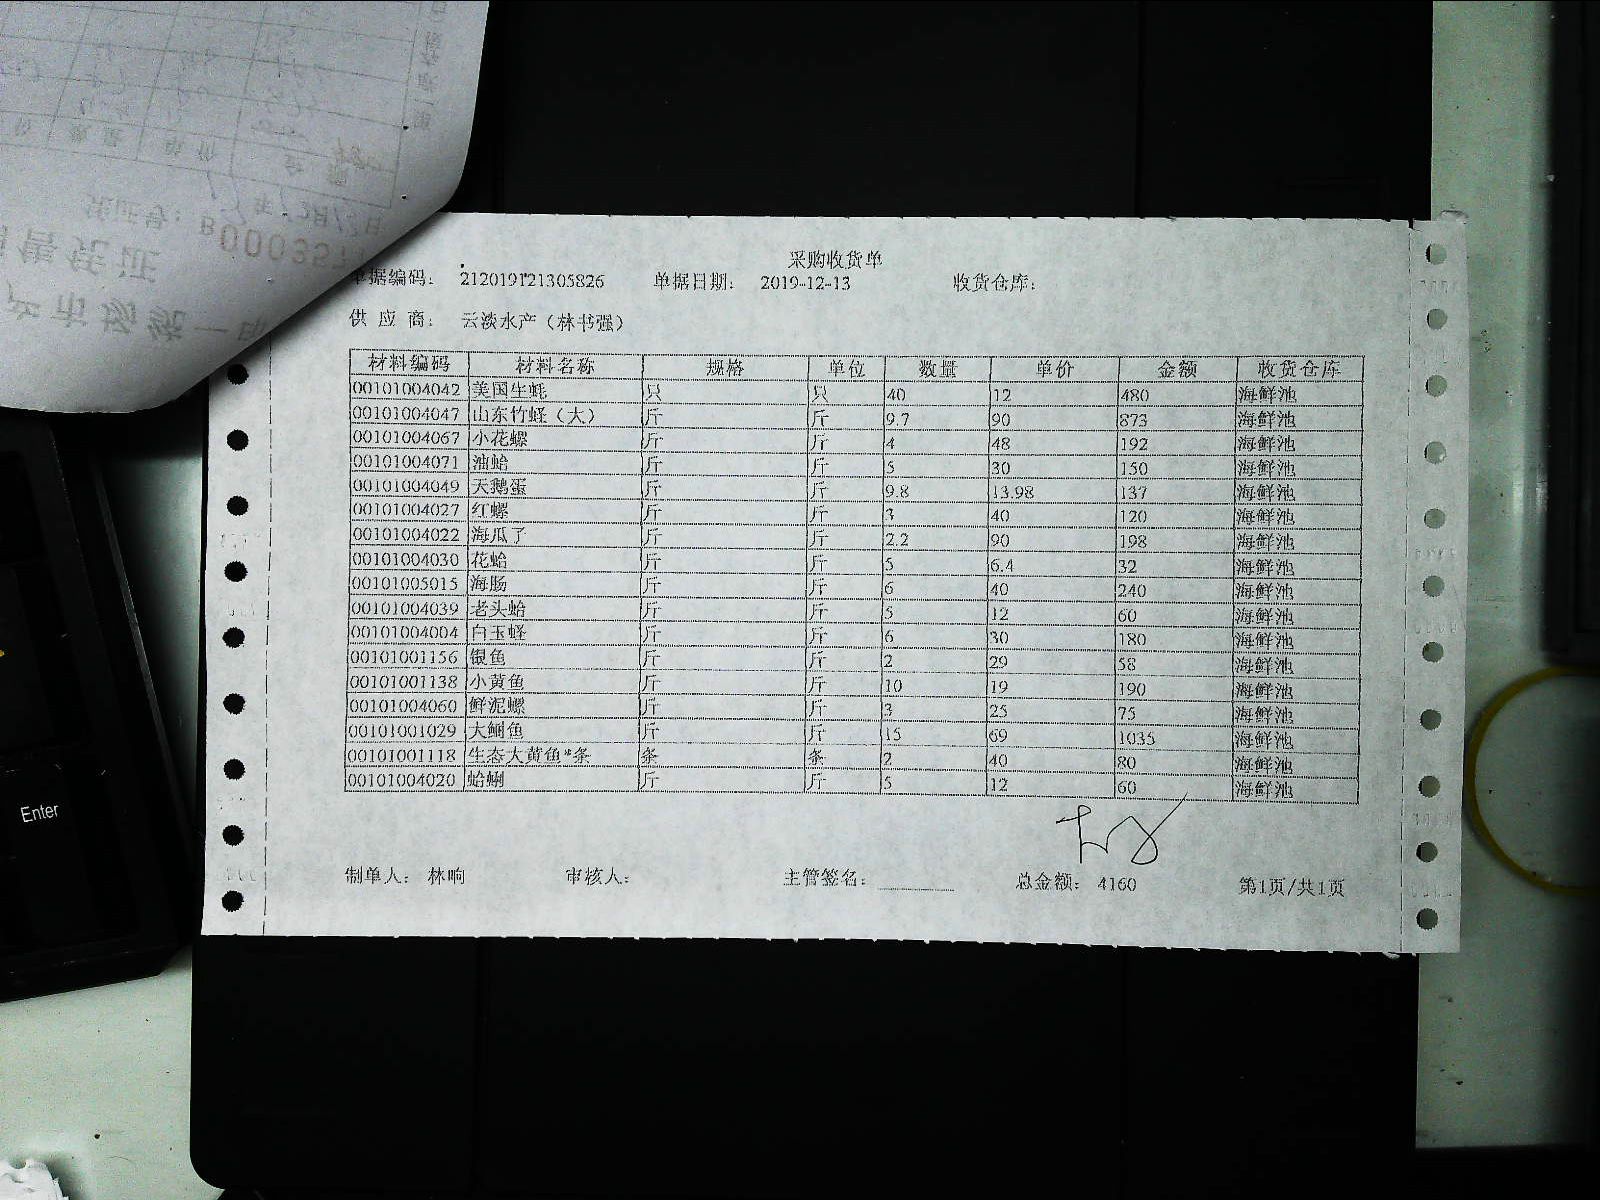 采购收货单
单据编码： 212019121305826 单据日期： 2019-12-13 收货仓库：
供 应 商： 云淡水产（林书强）
材料编码 材料名称 规格 单位 数量 单价 金额 收货仓库
00101004042 美国生蚝 只 只 40 12 480 海鲜池
00101004047 山东竹蛏（大） 斤 斤 9.7 90 873 海鲜池
00101004067 小花螺 斤 斤 4 48 192 海鲜池
00101004071 油蛤 斤 斤 5 30 150 海鲜池
00101004049 天鹅蛋 斤 斤 9.8 13.98 137 海鲜池
00101004027 红螺 斤 斤 3 40 120 海鲜池
00101004022 海瓜子 斤 斤 2.2 90 198 海鲜池
00101004030 花蛤 斤 斤 5 6.4 32 海鲜池
00101005015 海肠 斤 斤 6 40 240 海鲜池
00101004039 老头蛤 斤 斤 5 12 60 海鲜池
00101004004 白玉蛏 斤 斤 6 30 180 海鲜池
00101001156 银鱼 斤 斤 2 29 58 海鲜池
00101001138 小黄鱼 斤 斤 10 19 190 海鲜池
00101004060 鲜泥螺 斤 斤 3 25 75 海鲜池
00101001029 大鲷鱼 斤 斤 15 69 1035 海鲜池
00101001118 生态大黄鱼*条 条 条 2 40 80 海鲜池
00101004020 蛤蜊 斤 斤 5 12 60 海鲜池
制单人： 林响 审核人： 主管签名： 总金额： 4160 第1页/共1页
Enter